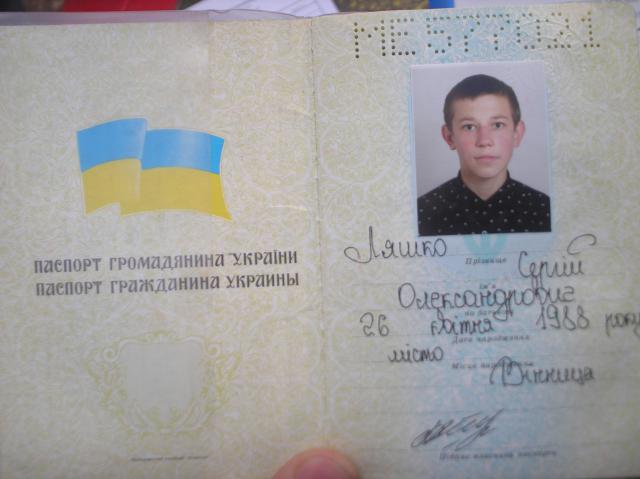 ПАСПОРТ ГРОМАДЯНИНА УКРАЇНИ
ПАСПОРТ ГРАЖДАНИНА УКРАИНЫ
Ляшко
Прізвище
Сергій
Ім'я
Олександрович
по батькові
26 квітня 1988 року
Дата народження
місто
Місце народження
Вінниця
Підпис власника паспорта